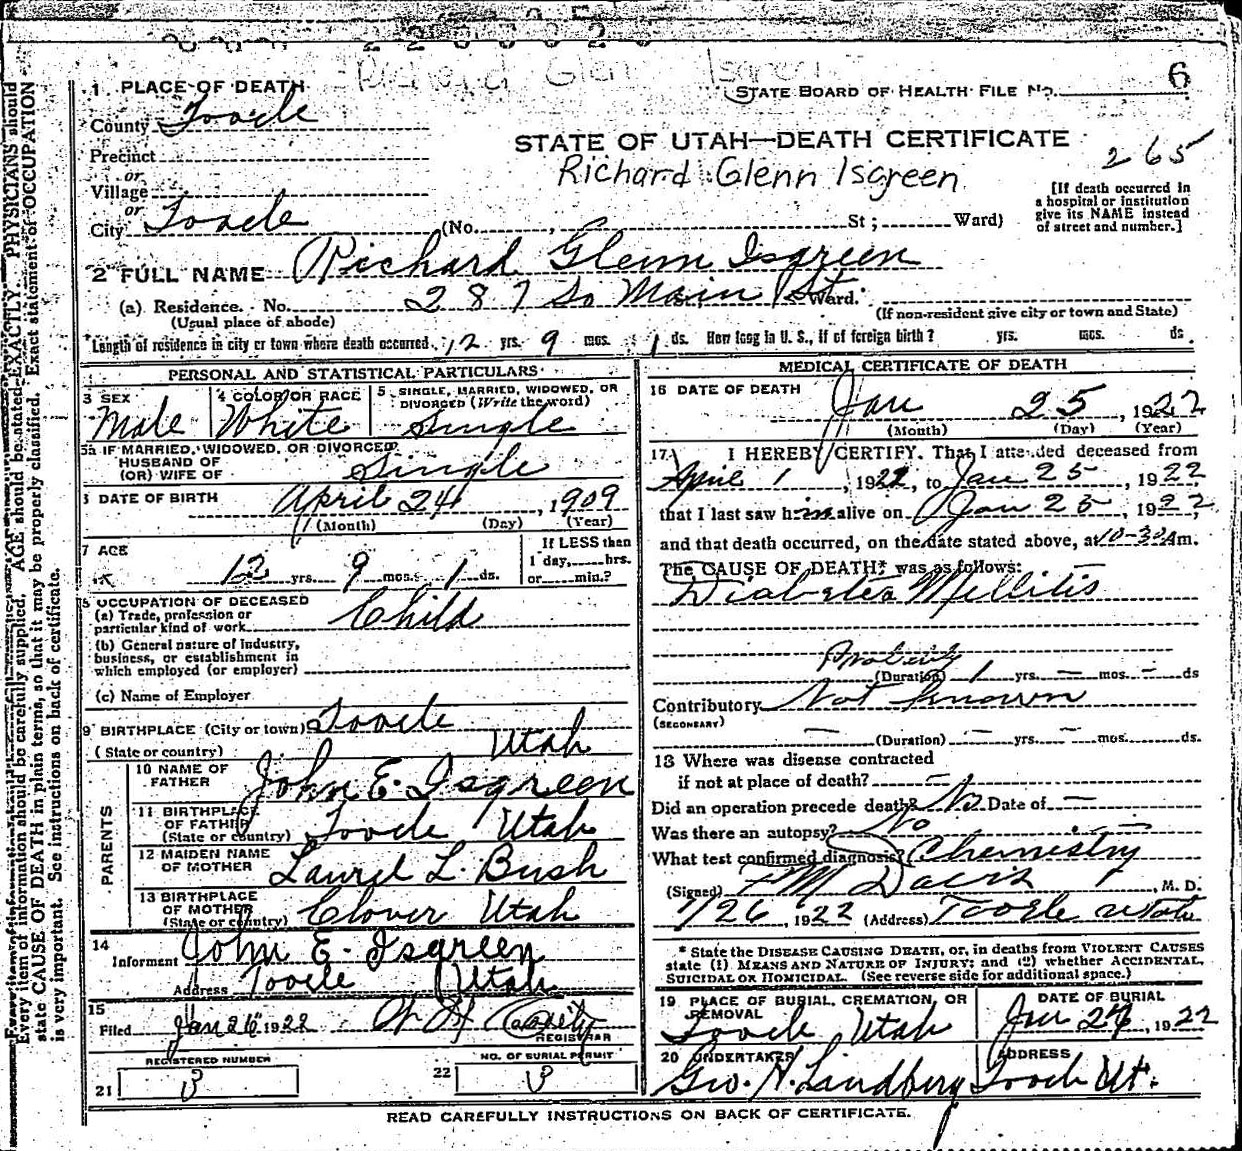 Richard Glenn Isgreen
6
1 PLACE OF DEATH
STATE BOARD OF HEALTH FILE No.
County Tooele
STATE OF UTAH—DEATH CERTIFICATE
265
Precinct
or
Richard Glenn Isgreen
Village
or
[If death occurred in
a hospital or institution
give its NAME instead
of street and number.]
City Tooele (No. , St ; Ward)
2 FULL NAME Richard Glenn Isgreen
(a) Residence. No. 287 So Main St Ward.
(Usual place of abode) (If non-resident give city or town and State)
Length of residence in city or town where death occurred 12 yrs. 9 mos. 1 ds. How long in U. S., if of foreign birth? yrs. mos. ds.
PERSONAL AND STATISTICAL PARTICULARS
3 SEX
Male
4 COLOR OR RACE
White
5 SINGLE, MARRIED, WIDOWED, OR
DIVORCED (Write the word)
Single
5a IF MARRIED, WIDOWED, OR DIVORCED
HUSBAND OF
(OR) WIFE OF Single
6 DATE OF BIRTH April 24, 1909
(Month) (Day) (Year)
7 AGE
12 yrs. 9 mos. 1 ds.
If LESS than
1 day, hrs.
or min.?
8 OCCUPATION OF DECEASED
(a) Trade, profession or
particular kind of work Child
(b) General nature of industry,
business, or establishment in
which employed (or employer)
(c) Name of Employer
9 BIRTHPLACE (City or town) Tooele
(State or country) Utah
PARENTS
10 NAME OF
FATHER John E. Isgreen
11 BIRTHPLACE
OF FATHER
(State or country) Tooele Utah
12 MAIDEN NAME
OF MOTHER Laurel L. Bush
13 BIRTHPLACE
OF MOTHER
(State or country) Clover Utah
14
Informant John E. Isgreen
Address Tooele Utah
15
Filed Jan 26 1922
REGISTRAR
REGISTERED NUMBER
21 3
NO. OF BURIAL PERMIT
22 3
MEDICAL CERTIFICATE OF DEATH
16 DATE OF DEATH
Jan 25, 1922
(Month) (Day) (Year)
17 I HEREBY CERTIFY. That I attended deceased from
April 1, 1922, to Jan 25, 1922
that I last saw him alive on Jan 25, 1922,
and that death occurred, on the date stated above, at 10-30 Am.
The CAUSE OF DEATH* was as follows:
Diabetes Mellitis
Probably
(Duration) 1 yrs. — mos. — ds
Contributory Not known
(SECONDARY)
— (Duration) — yrs. — mos. ds.
18 Where was disease contracted
if not at place of death? —
Did an operation precede death? No Date of —
Was there an autopsy? No —
What test confirmed diagnosis? Chemistry
(Signed) P M Davis, M. D.
1/26, 1922 (Address) Tooele Utah
* State the DISEASE CAUSING DEATH, or, in deaths from VIOLENT CAUSES
state (1) MEANS AND NATURE OF INJURY; and (2) whether ACCIDENTAL,
SUICIDAL OR HOMICIDAL. (See reverse side for additional space.)
19 PLACE OF BURIAL, CREMATION, OR
REMOVAL
Tooele Utah
DATE OF BURIAL
Jan 27, 1922
20 UNDERTAKER
Geo. H. Lindberg
ADDRESS
Tooele Ut.
READ CAREFULLY INSTRUCTIONS ON BACK OF CERTIFICATE.
Every item of information should be carefully supplied. AGE should be stated EXACTLY. PHYSICIANS should
state CAUSE OF DEATH in plain terms, so that it may be properly classified. Exact statement of OCCUPATION
is very important. See instructions on back of certificate.